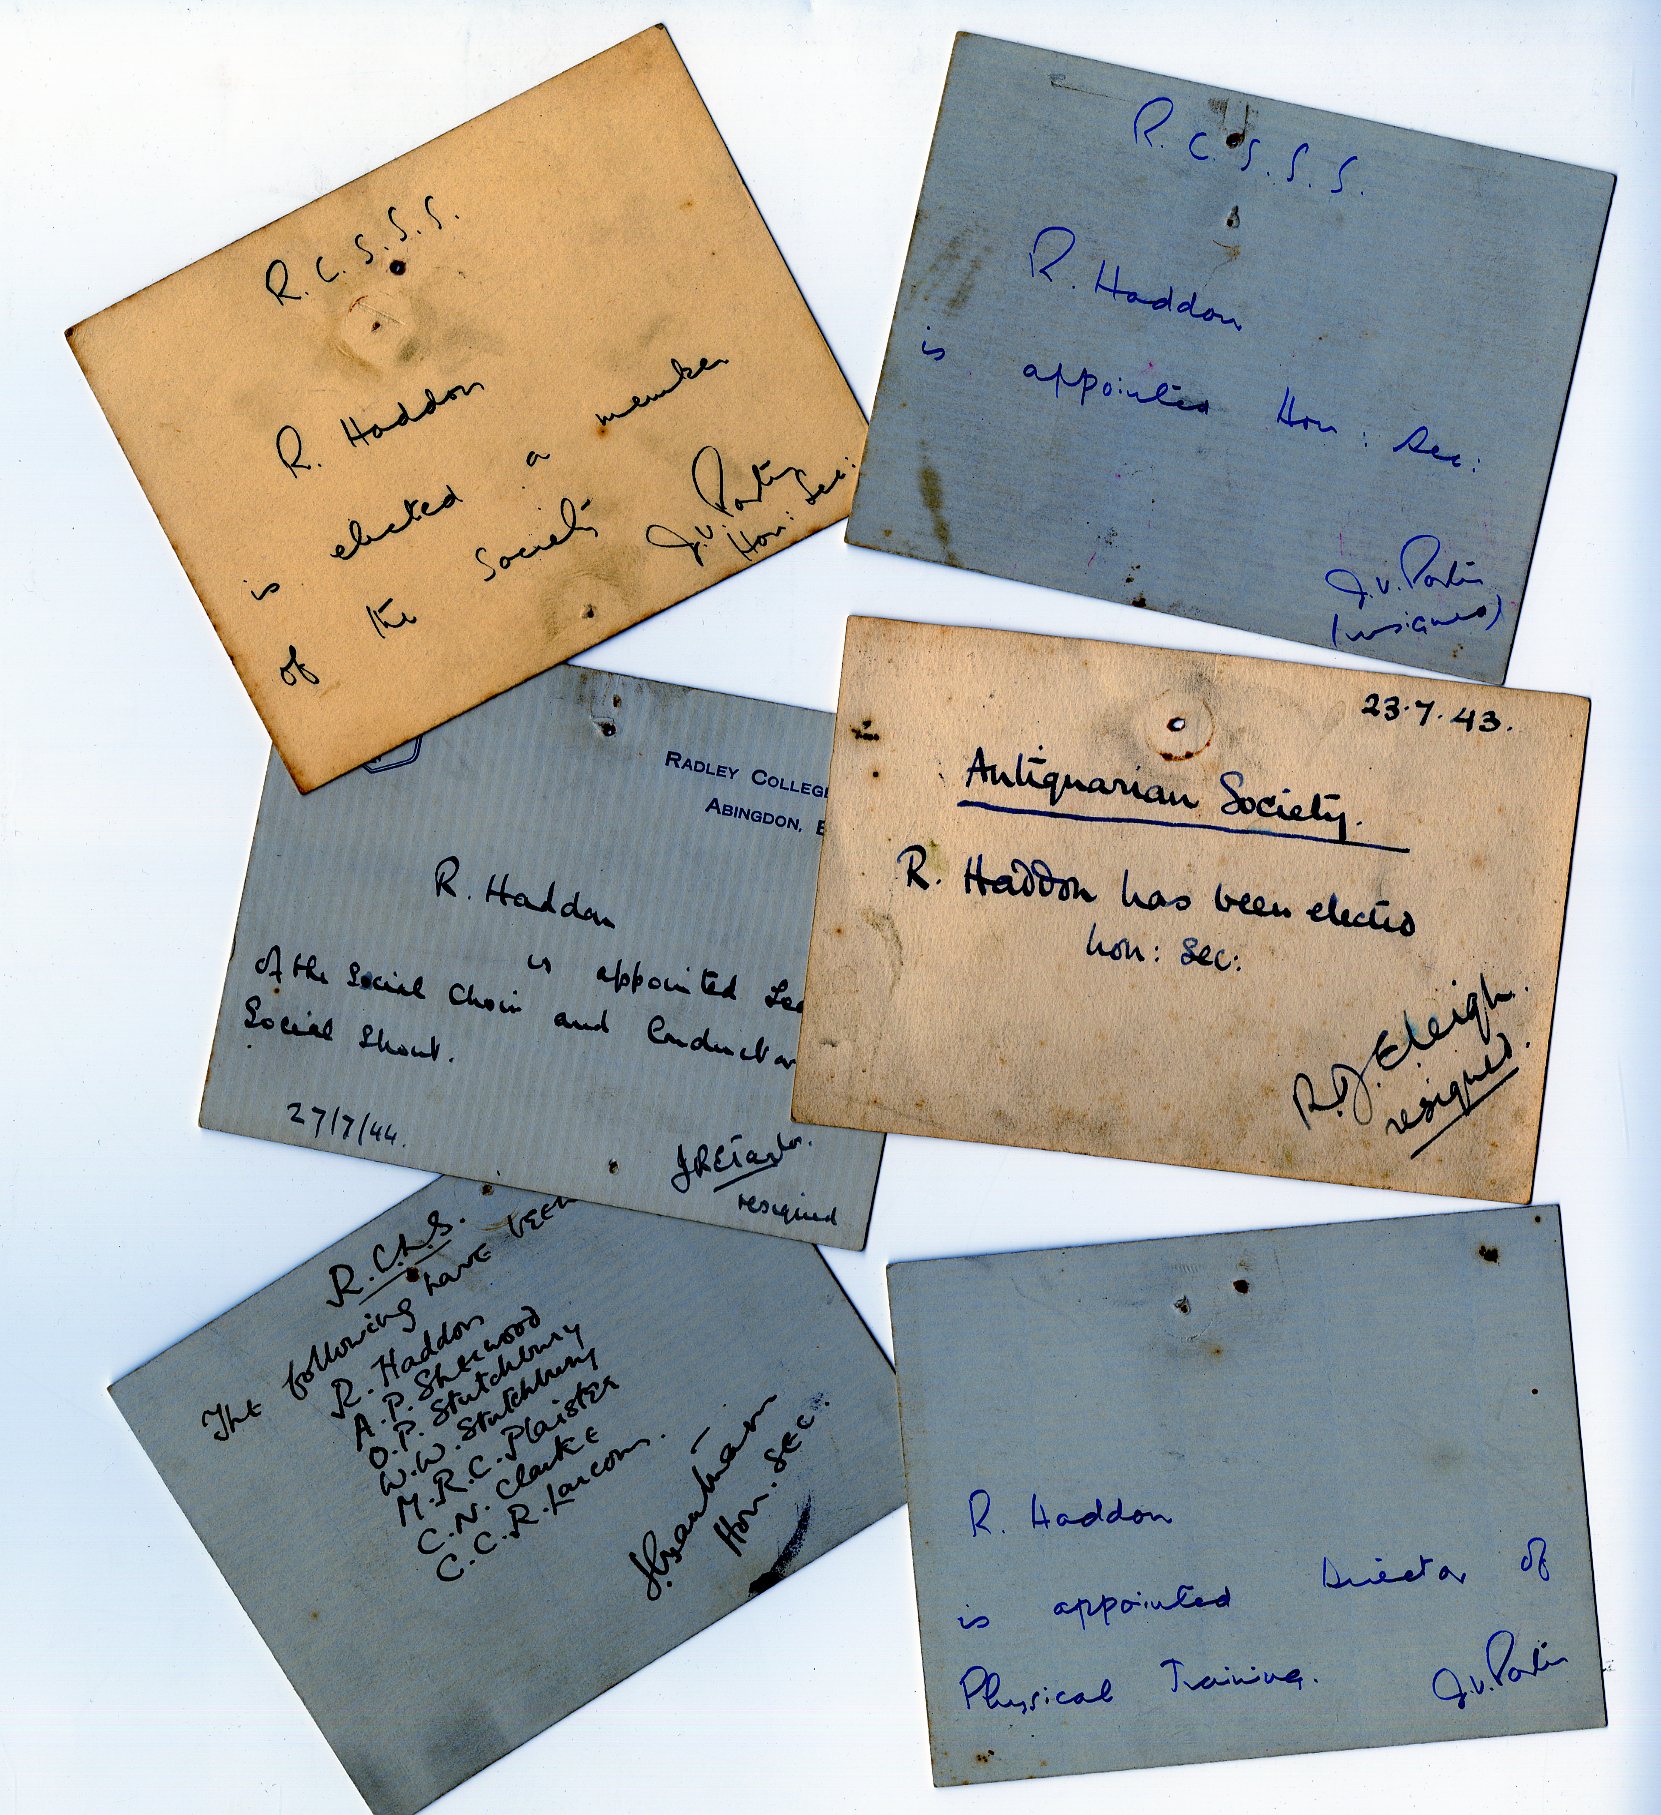 R. C. S. S. S.
R. Haddon
is elected a member
of the Society
J.V. Partin
Hon: Sec:
R. C. S. S. S.
R. Haddon
is appointed Hon: Sec:
J.V. Partin
(resigned)
RADLEY COLLEGE
ABINGDON,
R. Haddon
is appointed
of the Social Choir and Conductor
Social Shout.
27/7/44.
resigned
23.7.43.
Antiquarian Society.
R. Haddon has been elected
hon: Sec:
resigned.
The following have been
R. Haddon
A. P. Sherwood
O. P. Stutchbury
W. W. Stutchbury
M. R. C. Plaister
C. N. Clarke
C. C. R. Larcom.
Hon. Sec.
R. Haddon
is appointed Director of
Physical Training.
J.V. Partin